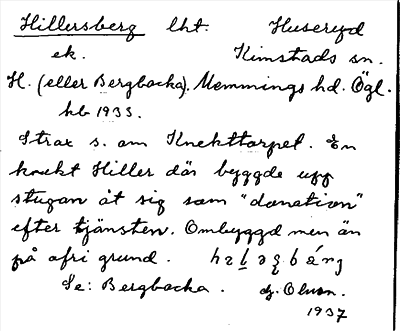 Hillersberg lht. Huseryd
ek. Kimstads sn.
H. (eller Bergbacka). Memmings hd. Ögl.
kb 1933.
Strax s. om Knekttorpet. En
knekt Hiller där byggde upp
stugan åt sig som "donation"
efter tjänsten. Ombyggd men än
på afri grund.
Se: Bergbacka. Olsson.
1937